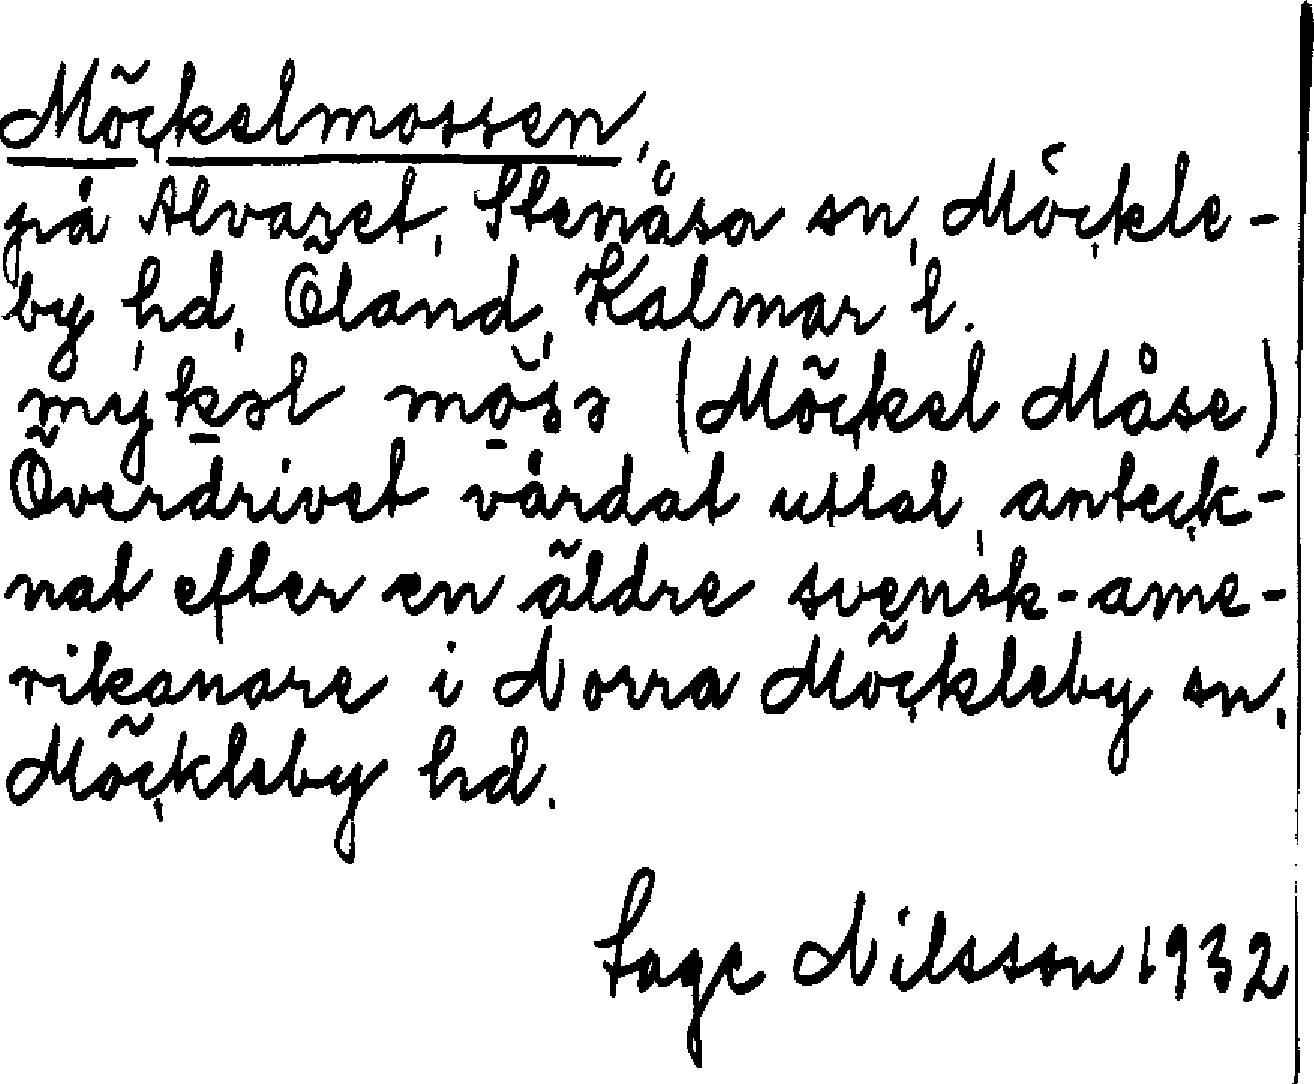 Möckelmossen,
på Alvaret, Stenåsa sn, Möckle-
by hd, Öland, Kalmar l.
(Möckel Måse)
Överdrivet vårdat uttal, anteck-
nat efter en äldre svensk-ame-
rikanare i Norra Möckleby sn,
Möckleby hd.
Sage Nilsson 1932